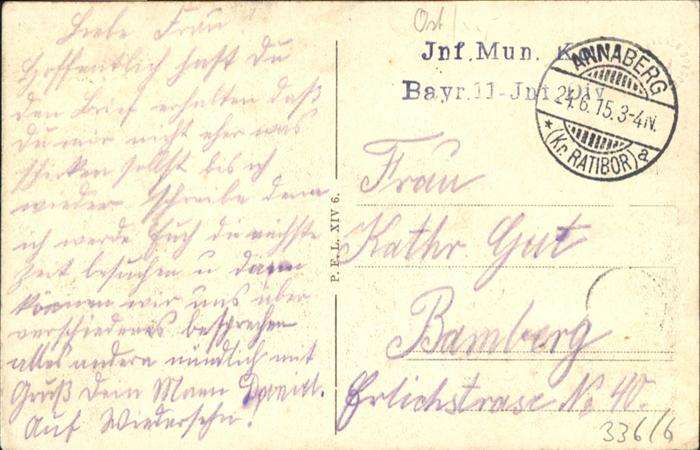 Liebe Frau
Hoffentlich hast Du
den Brief erhalten daß
du mir nicht eher was
schicken sollst bis ich
wieder schreibe denn
ich werde Euch die nächste
Zeit besuchen u dann
können wir uns über
verschiedenes besprechen
alles andere mündlich mit
Gruß Dein Mann
Auf Wiedersehn!
P. E. L. XIV 6.
Jnf. Mun. K
Bayr. 11-Jnf Div
ANNABERG
24.6.15.3-4N.
* (Kr. RATIBOR) a
Frau
Kathr. Gut
Bamberg
Erlichstrase No 40.
336/6